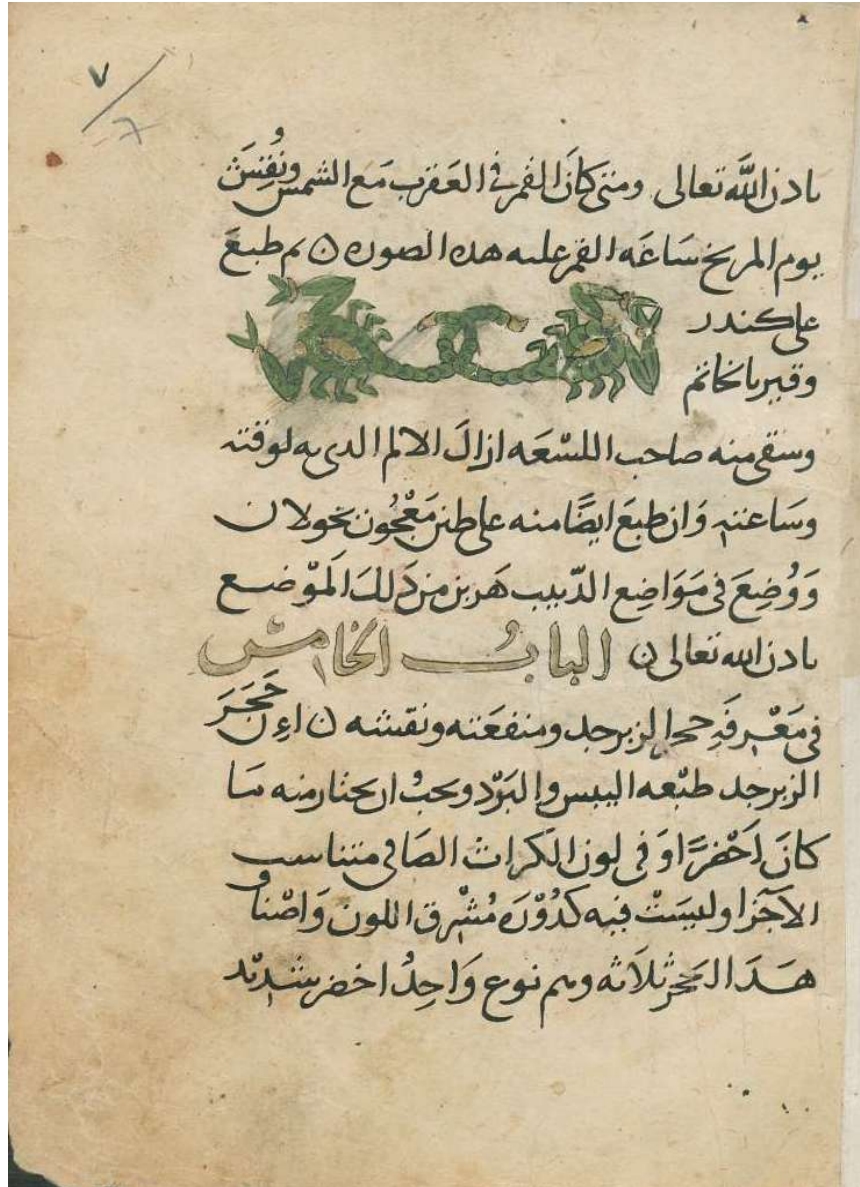 ٧/7
بادن الله تعالى ومتى كان القمر في العقرب مع الشمس ونُقِشَ
يوم المريخ ساعَه القمر عليه هده الصوره ن م طبعَ
على كندر
وقير باخاتم
وسقى منه صاحب اللسْعَه ازال الالم الدى به لوقته
وسَاعته وَان طبعَ ايضًا منه على طين مَعْجُون بخولان
وَوُضِعَ فى مَوَاضِع الدّبيب هَربن من دَلك المَوْضع
بادن الله تعالى ن البابُ الخامسْ
فى مَعْرفَهِ حجر الزبرجد ومنفعَته ونقشه ن اِن حَجَرَ
الزبرجد طبْعه اليبس والبَرْد ويحبُ ان يحتار منه مَا
كانَ اَخْضرًا وَ فى لون الكراث الصَافى متناسب
الآجزا وليسَتْ فيه كدُوْرَه مُشْرق اللون وَاصْنا و
هَدَا الحجر ثلاثه وهم نوع وَاحِدُ اخضر شديد